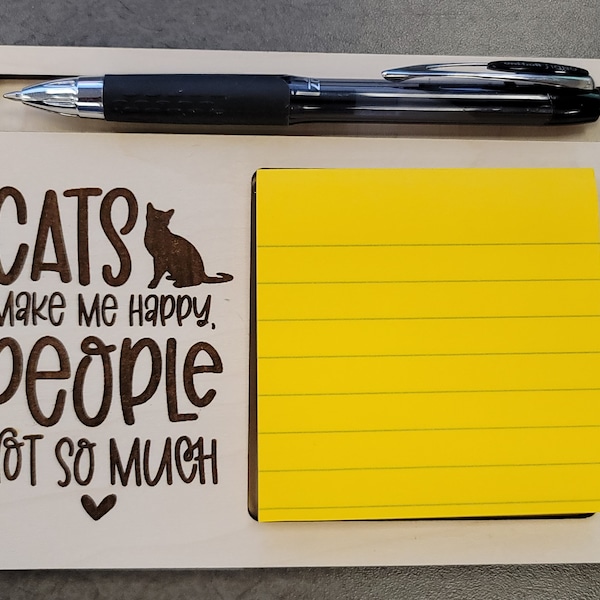 CATS
MAKE ME HAPPY,
PEOPLE
NOT SO MUCH